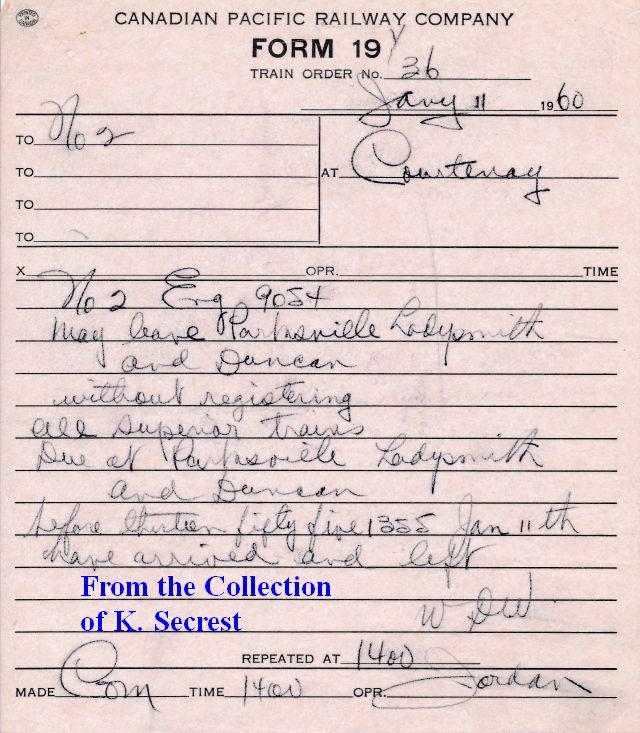 CANADIAN PACIFIC RAILWAY COMPANY
FORM 19 Y
TRAIN ORDER No. 36
Jany 11 1960
TO No 2
TO
AT Courtenay
TO
TO
X OPR. TIME
No 2 Eng 9054
May leave Parksville Ladysmith
and Duncan
without registering
all superior trains
Due at Parksville Ladysmith
and Duncan
before thirteen fifty five 1355 Jan 11th
have arrived and left
From the Collection
of K. Secrest
REPEATED AT 1400
MADE Com TIME 1400 OPR. Jordan